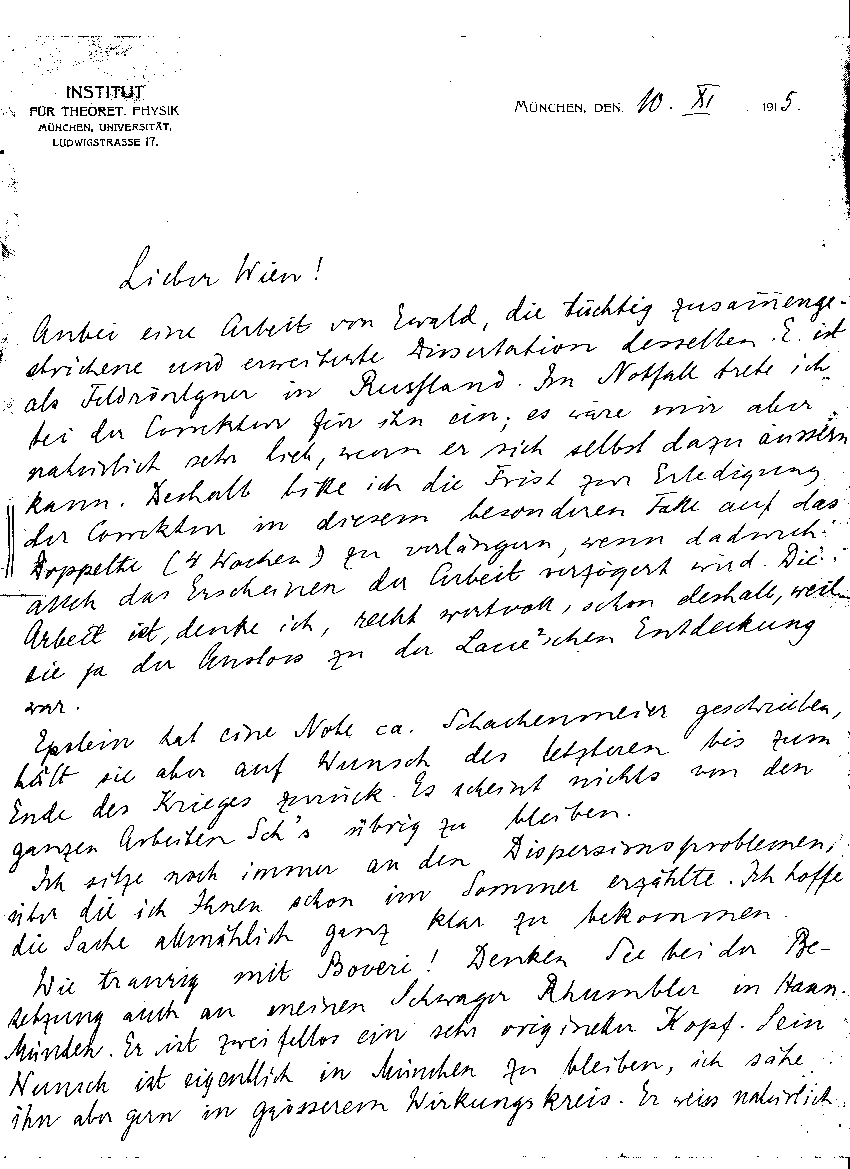 INSTITUT
FÜR THEORET. PHYSIK
MÜNCHEN, UNIVERSITÄT,
LUDWIGSTRASSE 17.
MÜNCHEN, DEN 10. XI. 1915.
Lieber Wien!
Anbei eine Arbeit von Ewald, die tüchtig zusam̅enge-
strichene und erweiterte Dissertation desselben. E. ist
als Feldröntgner in Russland. Im Notfall trete ich
bei der Correktur für ihn ein; es wäre mir aber
natürlich sehr lieb, wenn er sich selbst dazu äussern
kann. Deshalb bitte ich die Frist zur Erledigung
der Correktur in diesem besonderen Falle auf das
Doppelte (4 Wochen) zu verlängern, wenn dadurch
auch das Erscheinen der Arbeit verzögert wird. Die
Arbeit ist, denke ich, recht wertvoll, schon deshalb, weil
sie ja der Anstoss zu der Laue'schen Entdeckung
war.
Epstein hat eine Note ca. Schachenmeier geschrieben,
hält sie aber auf Wunsch des letzteren bis zum
Ende des Krieges zurück. Es scheint nichts von den
ganzen Arbeiten Sch's übrig zu bleiben.
Ich sitze noch immer an den Dispersionsproblemen,
über die ich Ihnen schon im Sommer erzählte. Ich hoffe
die Sache allmählich ganz klar zu bekommen.
Wie traurig mit Boveri! Denken Sie bei der Be-
setzung auch an meinen Schwager Rhumbler in Hann.
Münden. Er ist zweifellos ein sehr origineller Kopf. Sein
Wunsch ist eigentlich in München zu bleiben, ich sähe
ihn aber gern in grösserem Wirkungskreis. Er weiss natürlich